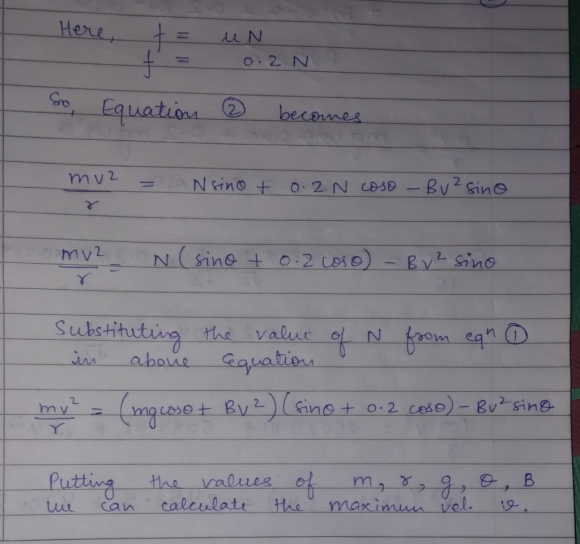 Here, f = μN
f = 0.2 N
So, Equation ② becomes
mv²/r = N sinθ + 0.2 N cosθ - Bv² sinθ
mv²/r = N (sinθ + 0.2 cosθ) - Bv² sinθ
Substituting the value of N from eqⁿ ①
in above Equation
mv²/r = (mgcosθ + Bv²)(sinθ + 0.2 cosθ) - Bv² sinθ
Putting the values of m, r, g, θ, B
we can calculate the maximum vel. v.